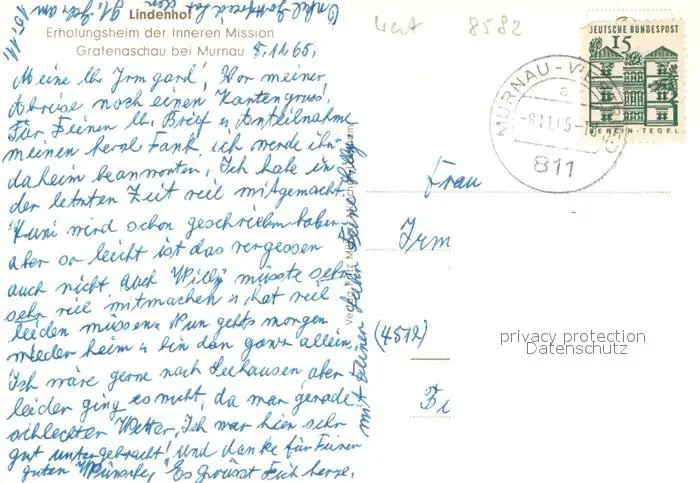 Onkel Gottfried hat den
91. Geb. am
15.11.
Lindenhof
Erholungsheim der Inneren Mission
Grafenaschau bei Murnau
8.11.65.
Meine lb. Irmgard! Vor meiner
Abreise noch einen Kartengruss!
Für Deinen lb. Brief u. Anteilnahme
meinen herzl. Dank. ich werde ihn
daheim beantworten, Ich habe in
der letzten Zeit viel mitgemacht.
Kuni wird schon geschrieben haben,
aber so leicht ist das vergessen
auch nicht. Auch Willy müsste sehr
sehr viel mitmachen u. hat viel
leiden müssen. Nun gehts morgen
wieder heim u bin dan ganz allein,
Ich wäre gerne nach Seehausen, aber
leider ging es nicht, da war gerade
schlechter Wetter, Ich war hier sehr
gut untergebracht! Und danke für Deinen
guten Wünsche, Es grüsst Dich herzl.
mit Deinen Lieben Deine
Verlag
wert 8582
DEUTSCHE BUNDESPOST
15
BERLIN-TEGEL
MURNAU
a
-8.11.65-
811
Frau
Irm
(4512)
privacy protection
Datenschutz